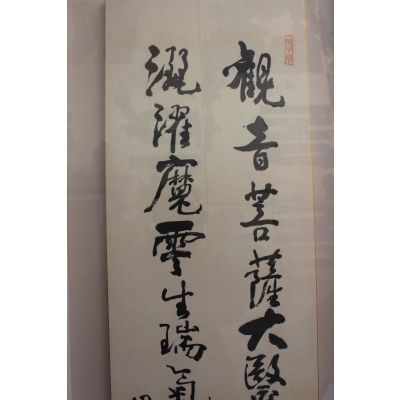 觀音菩薩大醫
灑濯魔雲生瑞氣